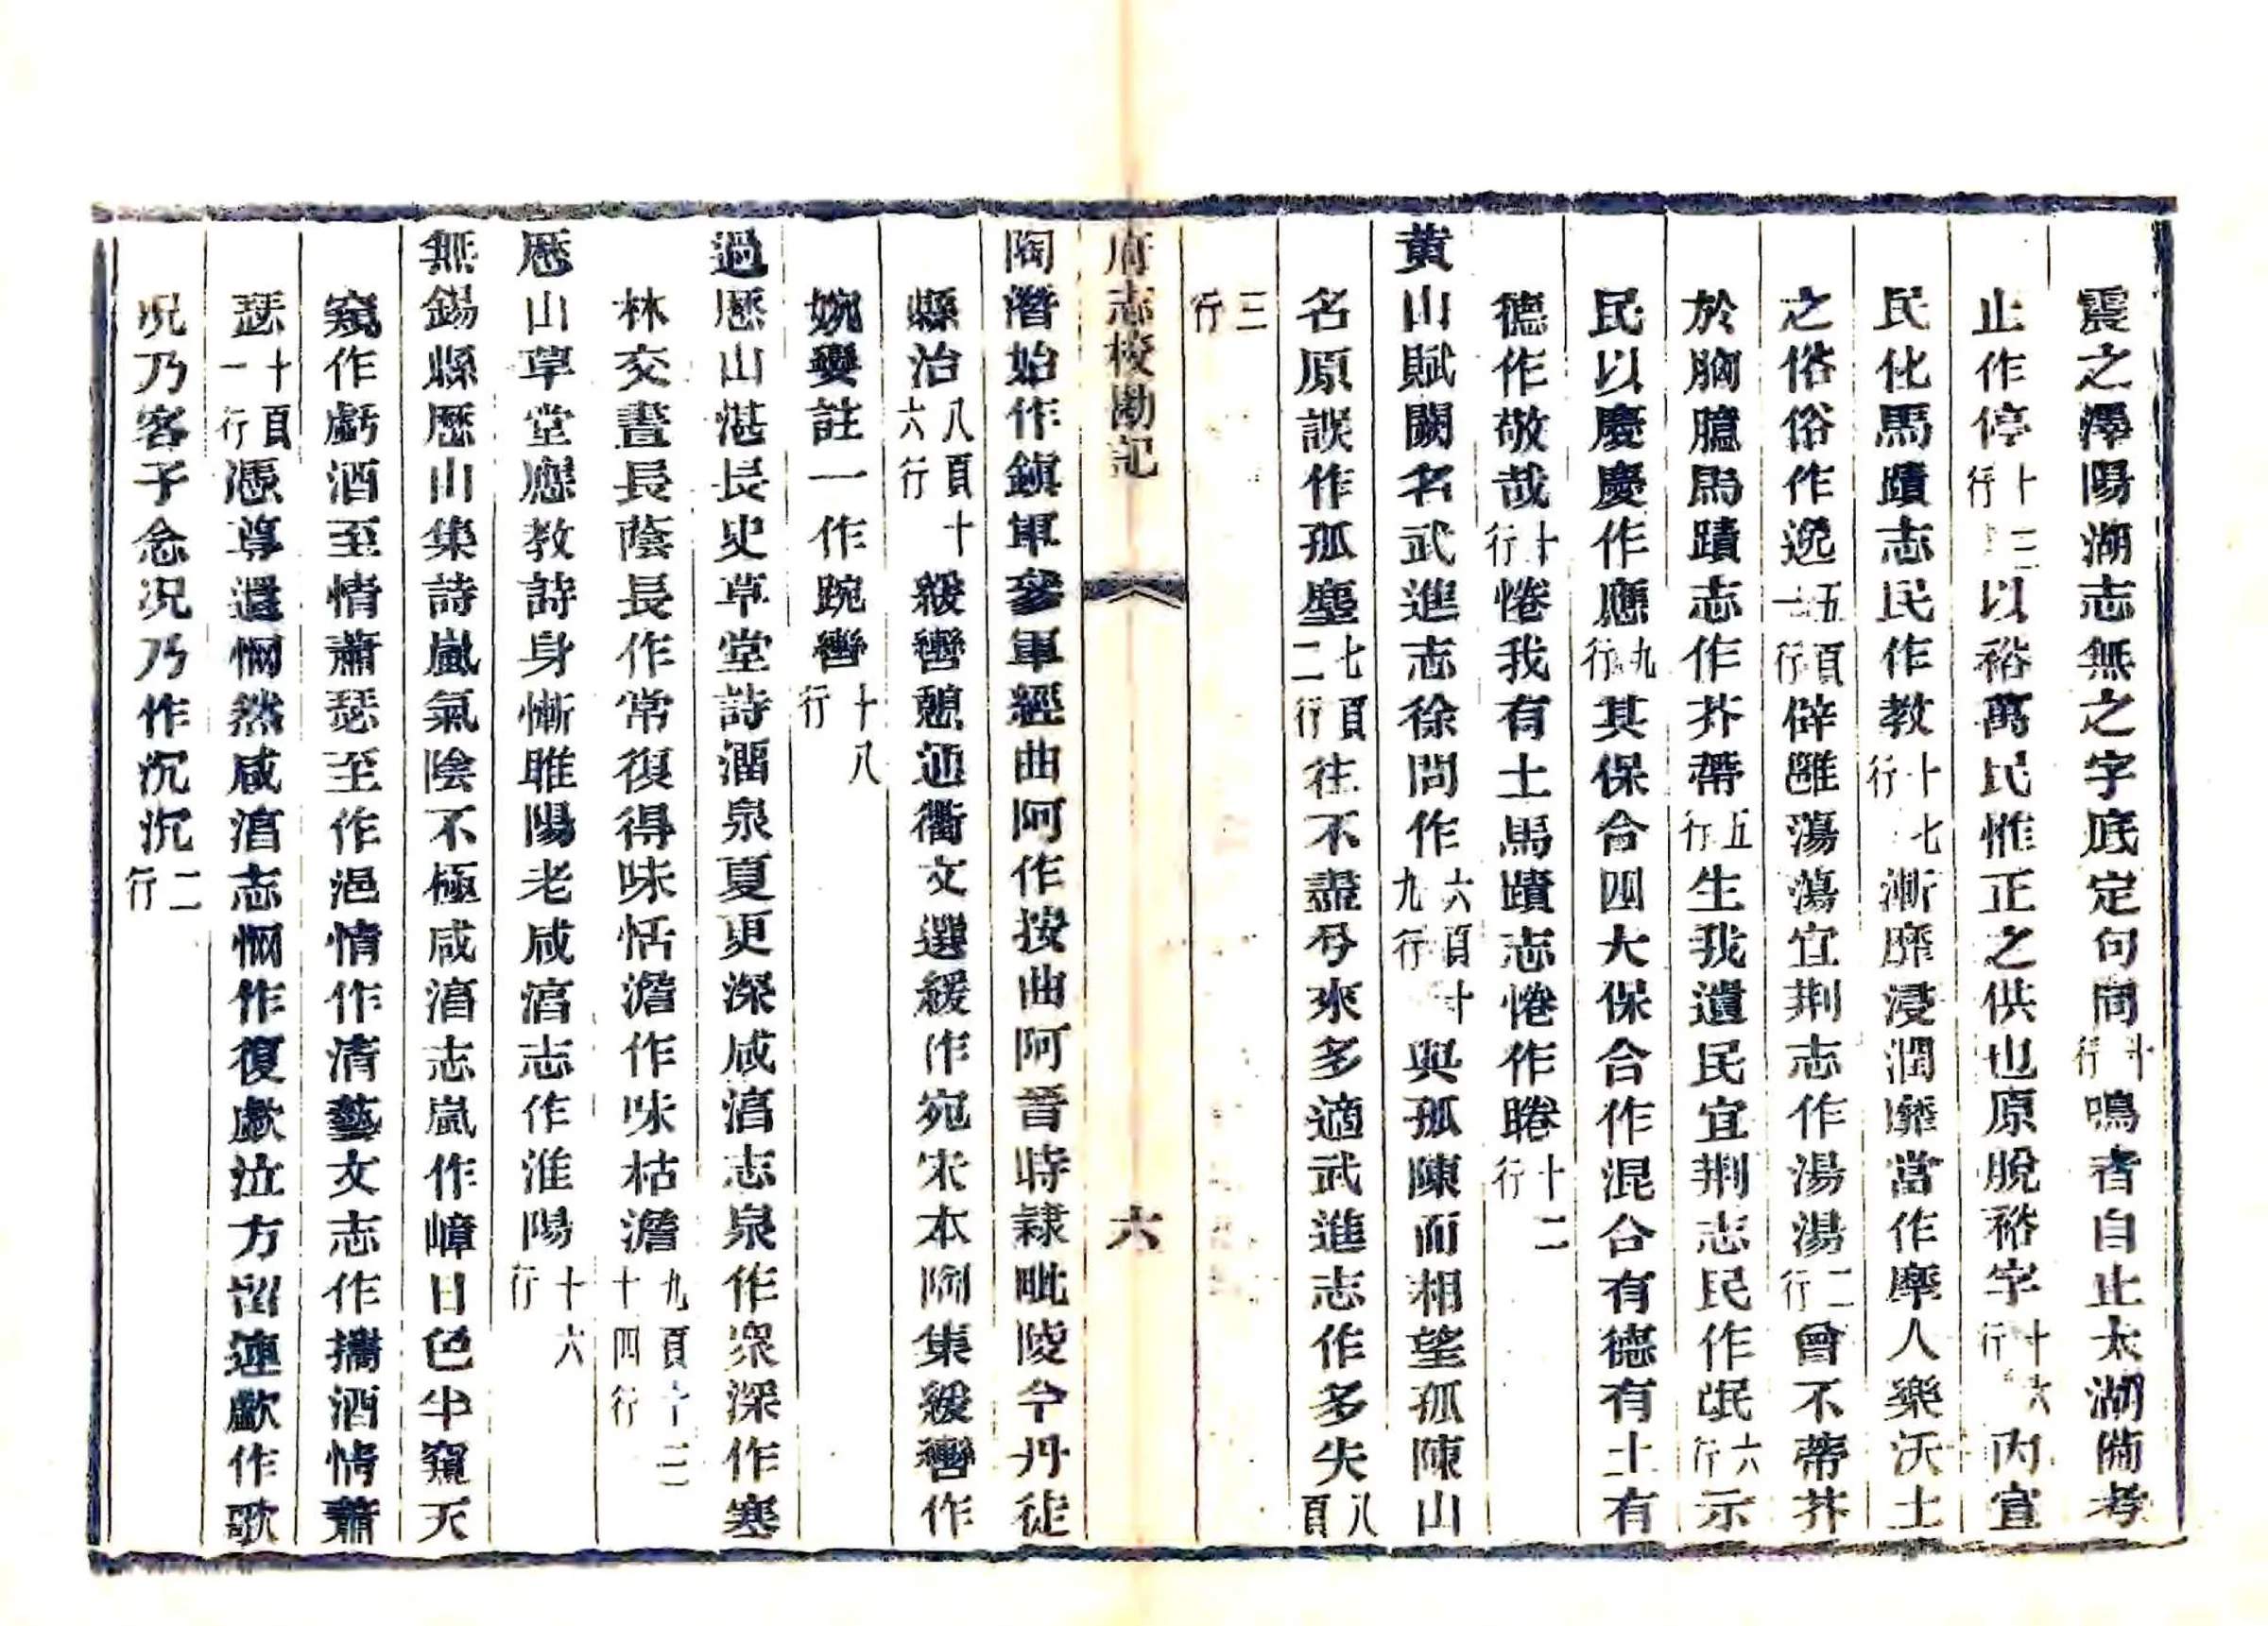 震之澤陽湖志無之字底定句同十行鳴者自止太湖備考
止作停十三行以裕萬民惟正之供也原脫裕字十六行內宣
民化馬蹟志民作教十七行漸靡浸潤靡當作摩人樂沃土
之俗俗作逸五頁一行僻雖蕩蕩宜荆志作湯湯二行曾不蒂芥
於胸臆馬蹟志作芥蔕五行生我遺民宜荆志民作氓六行示
民以慶慶作應九行其保合四大保合作混合有德有土有
德作敬哉十行惓我有土馬蹟志惓作睠十二行
黄山賦闕名武進志徐問作六頁十九行與孤陳而相望孤陳山
名原誤作孤塵七頁二行往不盡兮來多適武進志作多失八頁
三行
府志校勘記
六
陶潛始作鎭軍參軍經曲阿作按曲阿晉時隷毗陵今丹徒
縣治八頁十六行緩轡憩通衢文選緩作宛宋本陶集緩轡作
婉孌註一作踠轡十八行
過歷山湛長史草堂詩湎泉夏更深咸湻志泉作衆深作寒
林交晝長蔭長作常復得味恬澹作味枯澹九頁十二十四行
歷山草堂應教詩身慚睢陽老咸湻志作淮陽十六行
無錫縣歷山集詩嵐氣陰不極咸湻志嵐作嶂日色半窺天
窺作虧酒至情蕭瑟至作浥情作清藝文志作搆酒情蕭
瑟十頁一行憑尊還惘然咸湻志惘作復歔泣方留連歔作歌
況乃客子念况乃作沉沉二行